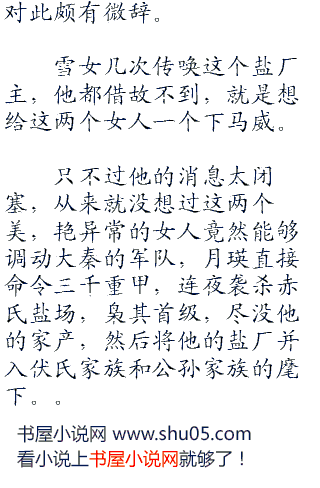 对此颇有微辞。
雪女几次传唤这个盐厂
主，他都借故不到，就是想
给这两个女人一个下马威。
只不过他的消息太闭
塞，从来就没想过这两个
美，艳异常的女人竟然能够
调动大秦的军队，月瑛直接
命令三千重甲，连夜袭杀赤
氏盐场，枭其首级，尽没他
的家产，然后将他的盐厂并
入伏氏家族和公孙家族的麾
下。。
书屋小说网 www.shu05.com
看小说上书屋小说网就够了！